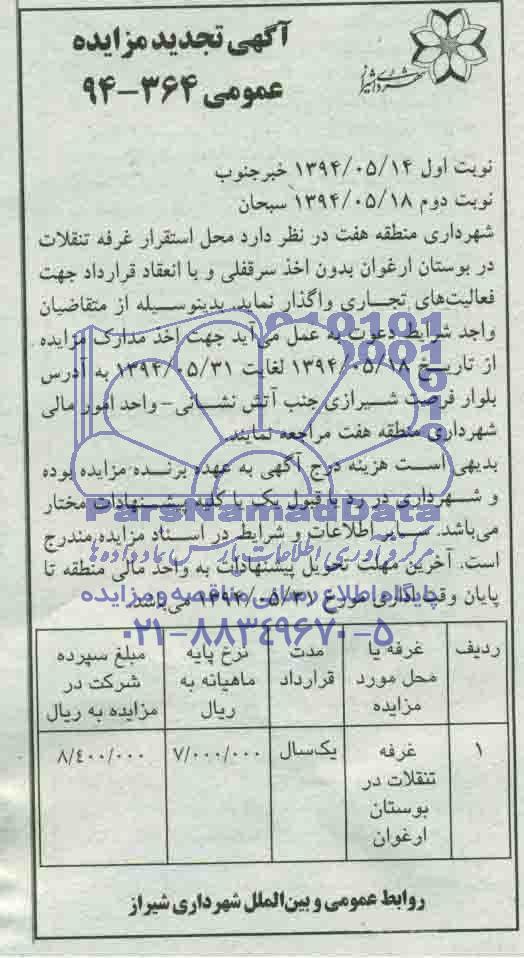 آگهی تجدید مزایده
عمومی ۳۶۴-۹۴
شهرداری شیراز
نوبت اول ۱۳۹۴/۰۵/۱۴ خبرجنوب
نوبت دوم ۱۳۹۴/۰۵/۱۸ سبحان
شهرداری منطقه هفت در نظر دارد محل استقرار غرفه تنقلات
در بوستان ارغوان بدون اخذ سرقفلی و با انعقاد قرارداد جهت
فعالیت‌های تجاری واگذار نماید. بدینوسیله از متقاضیان
واجد شرایط دعوت به عمل می‌آید جهت اخذ مدارک مزایده
از تاریخ ۱۳۹۴/۰۵/۱۸ لغایت ۱۳۹۴/۰۵/۳۱ به آدرس
بلوار فرصت شیرازی جنب آتش نشانی- واحد امور مالی
شهرداری منطقه هفت مراجعه نمایند.
بدیهی است هزینه درج آگهی به عهده برنده مزایده بوده
و شهرداری در رد یا قبول یک یا کلیه پیشنهادات مختار
می‌باشد. سایر اطلاعات و شرایط در اسناد مزایده مندرج
است. آخرین مهلت تحویل پیشنهادات به واحد مالی منطقه تا
پایان وقت اداری مورخ ۱۳۹۴/۰۵/۳۱ می‌باشد.
ParsNamadData
مرکز فرآوری اطلاعات پارس نماد داده‌ها
پایگاه اطلاع رسانی مناقصه و مزایده
۰۲۱-۸۸۳۴۹۶۷۰-۵
ردیف غرفه یا محل مورد مزایده مدت قرارداد نرخ پایه ماهیانه به ریال مبلغ سپرده شرکت در مزایده به ریال
۱ غرفه تنقلات در بوستان ارغوان یک‌سال ۷/۰۰۰/۰۰۰ ۸/٤۰۰/۰۰۰
روابط عمومی و بین‌الملل شهرداری شیراز